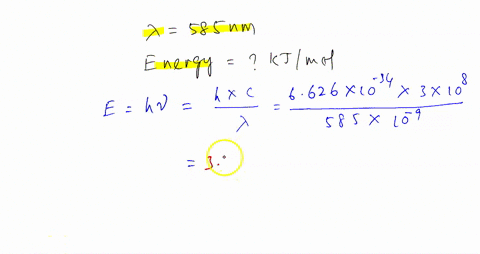 λ = 585 nm
Energy = ? KJ/mol
E = hν = h × c / λ = 6.626 × 10⁻³⁴ × 3 × 10⁸ / 585 × 10⁻⁹
= 3.